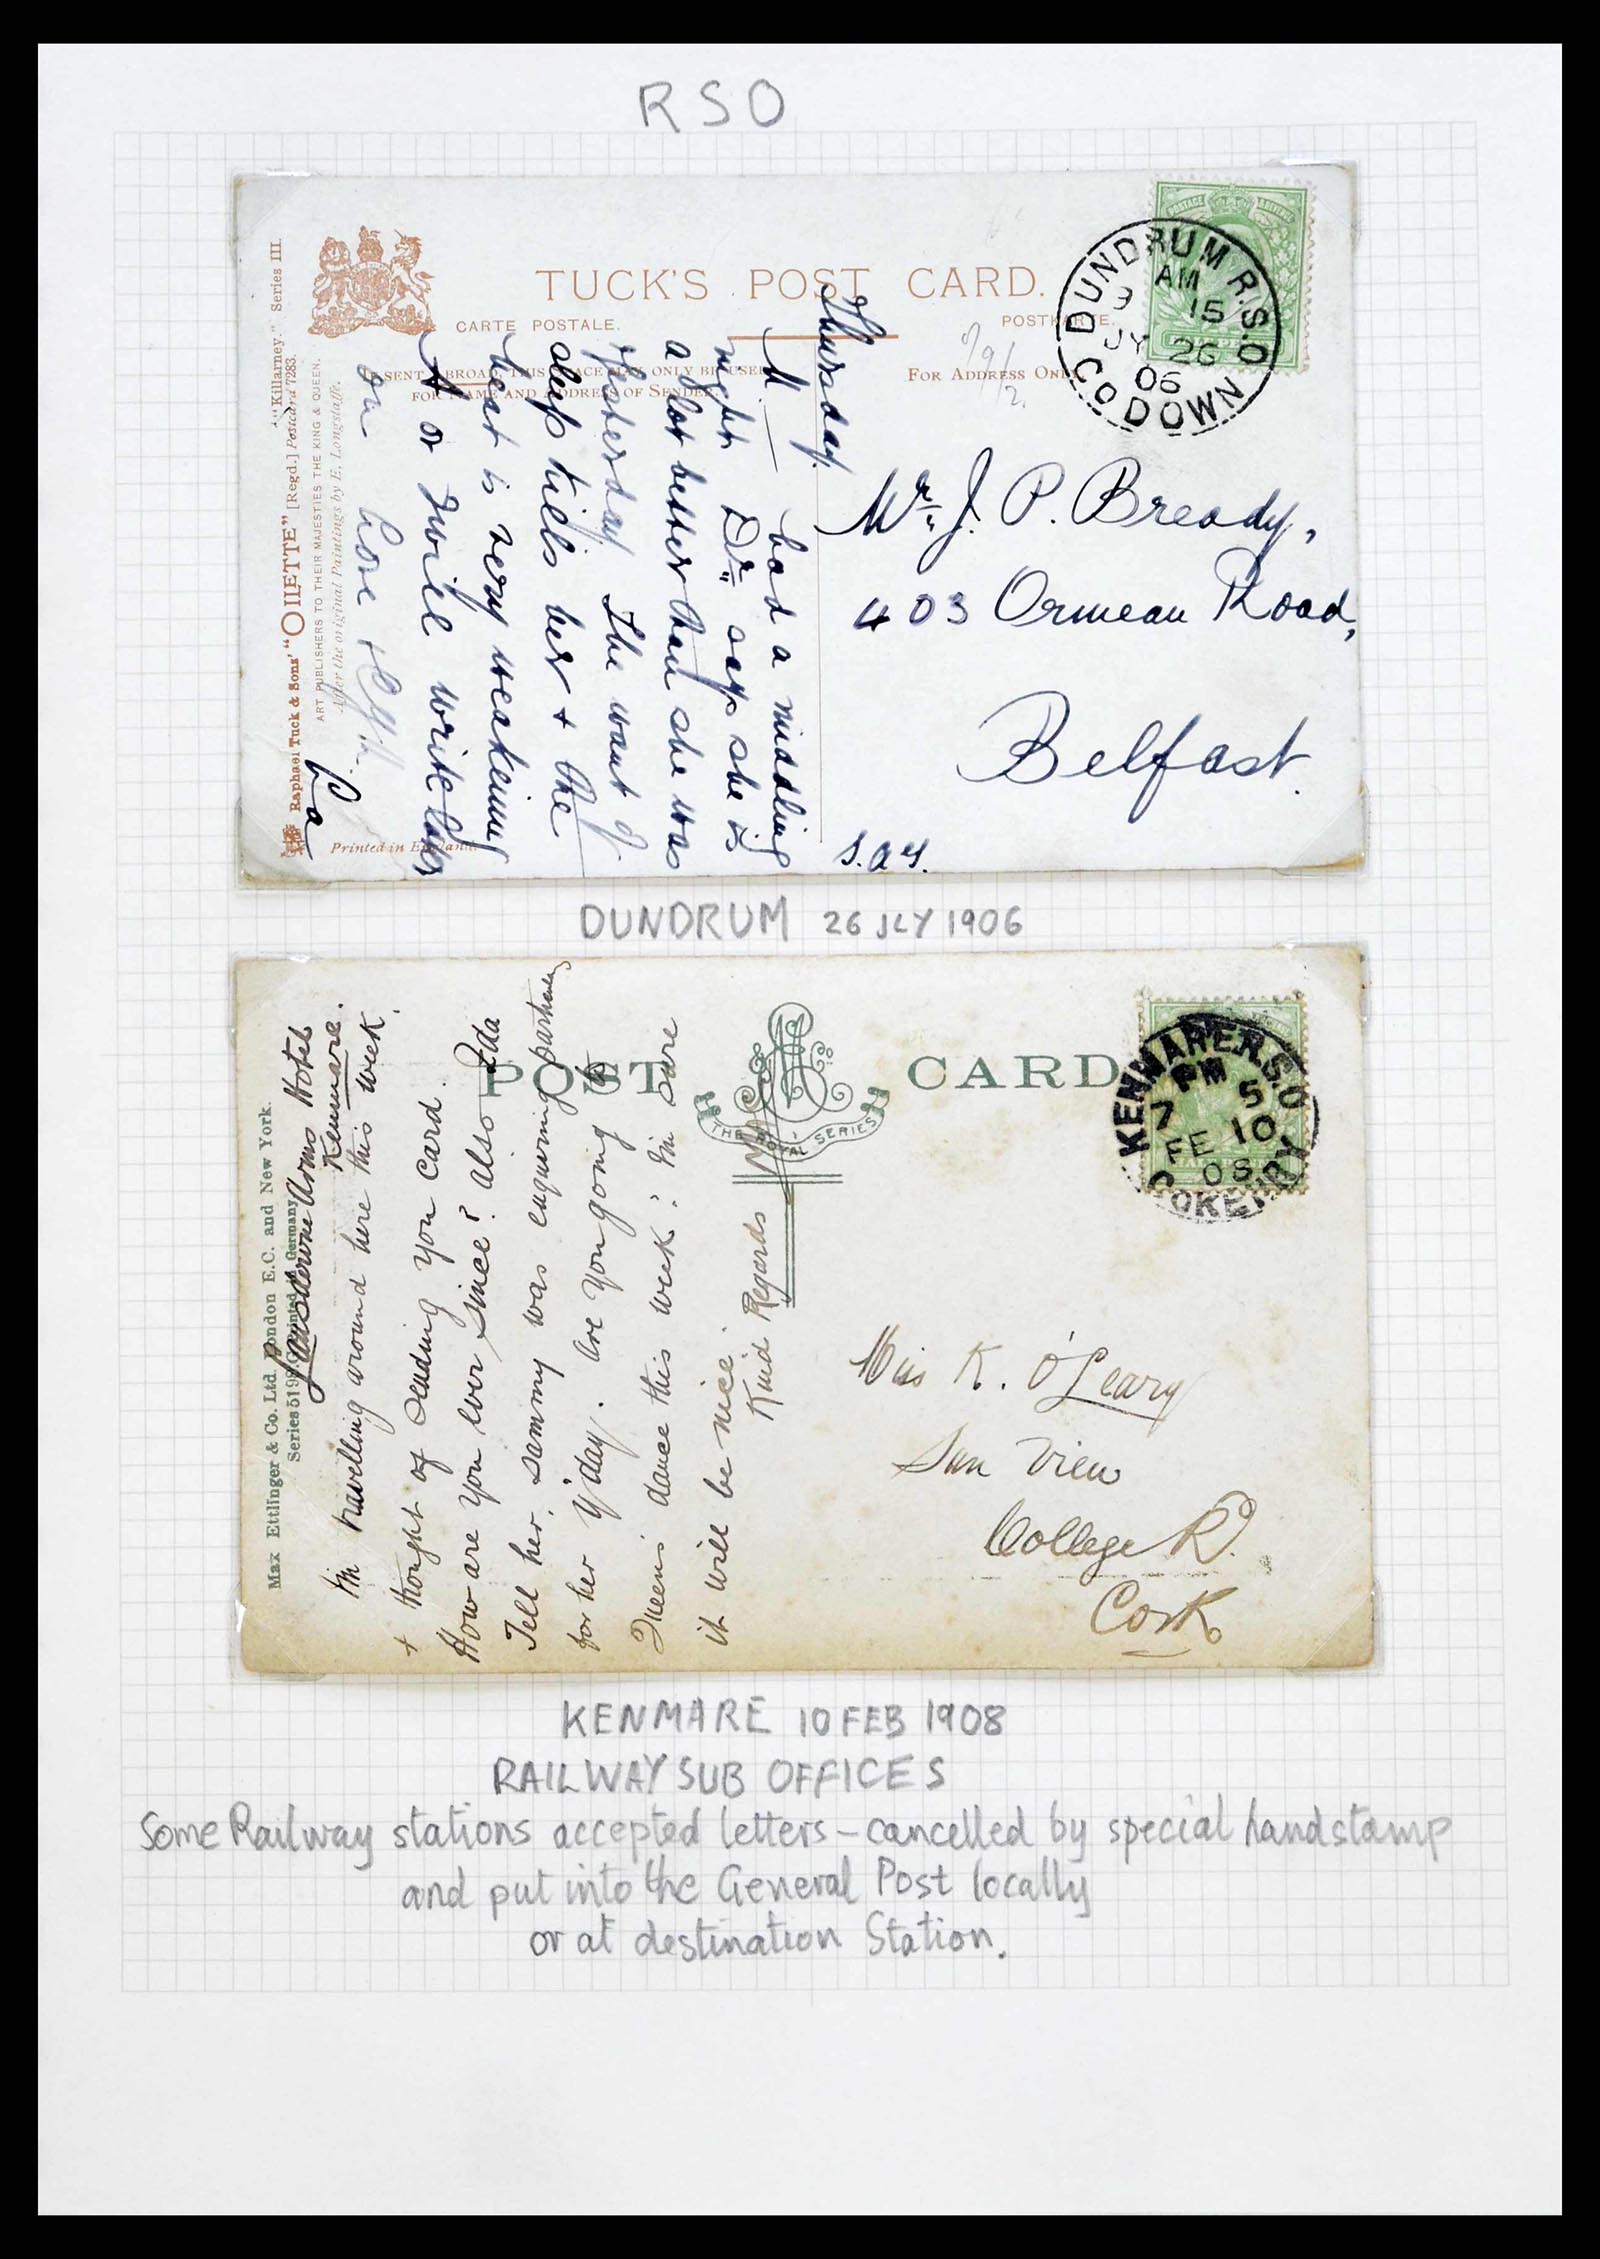 RSO
"Killarney." Series III.
Raphael Tuck & Sons' "OILETTE" [Regd.] Postcard 7283.
ART PUBLISHERS TO THEIR MAJESTIES THE KING & QUEEN.
After the original Paintings by E. Longstaffe.
Printed in England.
TUCK'S POST CARD.
CARTE POSTALE.
POSTKARTE.
IF SENT ABROAD, THIS SPACE MAY ONLY BE USED
FOR NAME AND ADDRESS OF SENDER.
FOR ADDRESS ONLY.
POSTAGE & REVENUE
DUNDRUM R.S.O
AM
9 15
JY 26
06
CO DOWN
Thursday.
M. had a middling
night Dr. says she is
a lot better than she was
Yesterday The want of
sleep kills her + the
heat is very weakening
or I will write later
Pa
Mr. J. P. Bready,
403 Ormeau Road,
Belfast.
DUNDRUM 26 JLY 1906
Max Ettlinger & Co. Ltd. London E.C. and New York.
Series 5198. Printed in Germany
POST CARD
THE ROYAL SERIES
KENMARE R.S.O
PM
7 5
FE 10
08
CO KERRY
Lansdowne Arms Hotel
Kenmare.
I'm travelling around here this week.
+ thought of sending you card.
How are you ever since? Also Ida
Tell her, Sammy was enquiring
for her y'day. Are you going to
Queens dance this week? I'm sure
it will be nice.
Kind Regards
Miss K. O'Leary
Sun View
College Rd.
Cork
KENMARE 10 FEB 1908
RAILWAY SUB OFFICES
Some Railway stations accepted letters – cancelled by special handstamp
and put into the General Post locally
or at destination Station.